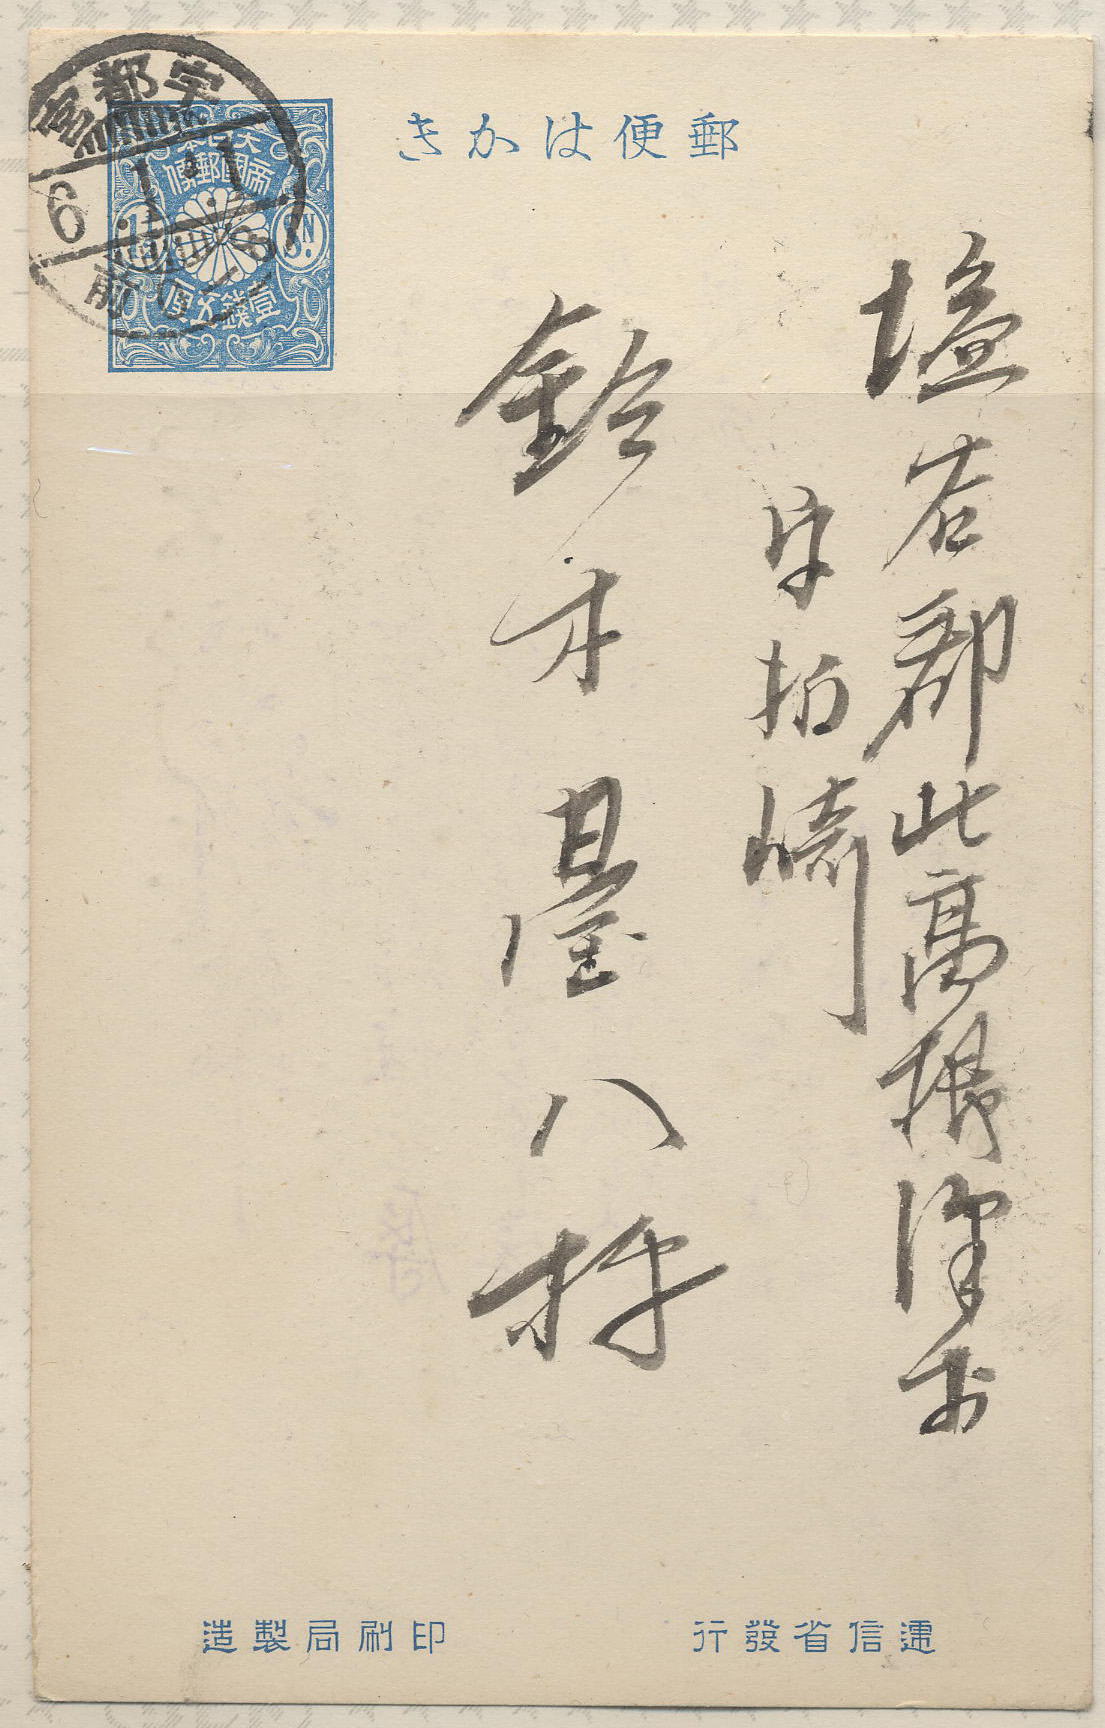 郵便はかき
大日本
帝國郵便
1½
SN.
壹錢五厘
宇都宮
6.1.1
前0-8
塩谷郡北高根澤村
字柏崎
鈴木臺八様
逓信省發行
印刷局製造